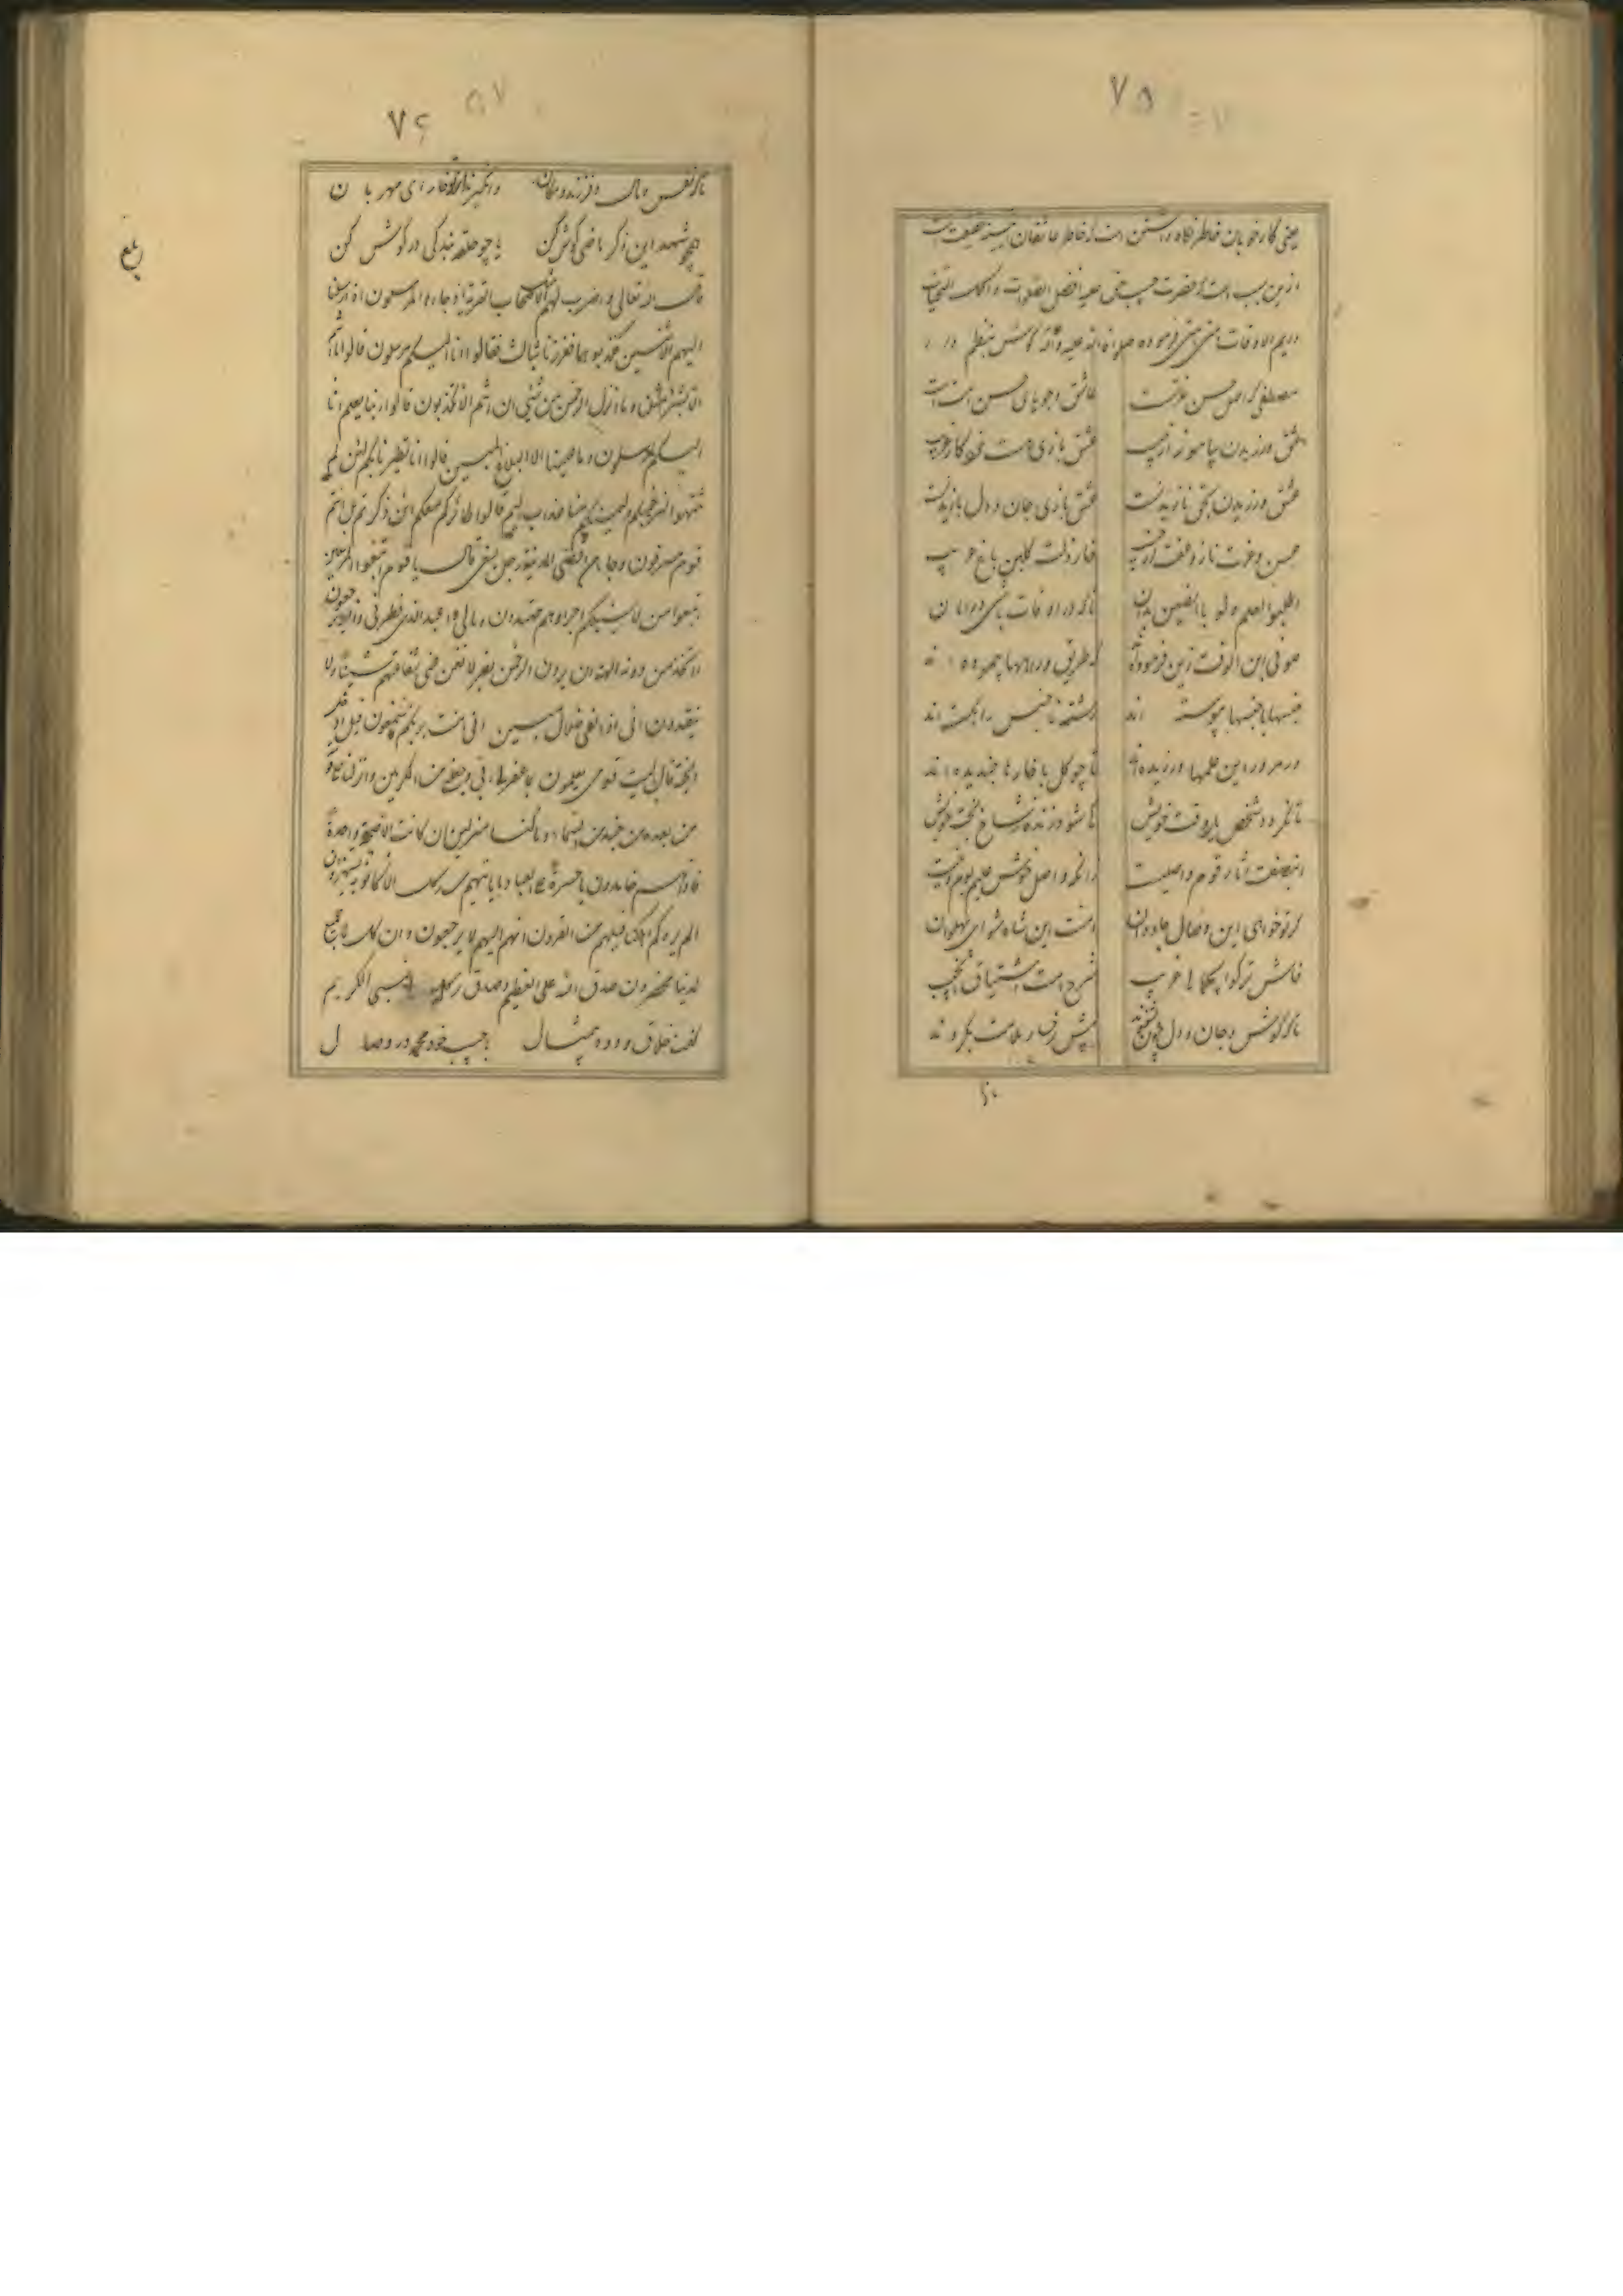 ٧٥
یعنی کار خوبان خاطر نگاه داشتن است از خاطر عاشقان
ازین سبب است که حضرت علیه افضل الصلوات و اکمل التحیات
دریم الاوقات فرموده صلواة الله علیه و آله گوش بنظم دار
مصطفی کز اصل حسن عزتست عاشق و جویای حسن است
عشق ورزیدن بیاموز از حبیب عشق بازی هست خود کار غریب
عشق ورزیدن بحق نازیدنست عشق بازی جان و دل بازیدنست
حسن و خوب خار ذلت گلبن باغ حبیب
اطلبوا العلم ولو بالصین بدان تا که در اوقات باشی در امان
صوفی ابن الوقت زین فرموده اند که طریق و راهها پیموده اند
جنسها با جنسها پیوسته اند رشته ناجنس را بگسته اند
در مرور این علمها ورزیده اند تا چو گل با خارها خندیده اند
تا نگردد شخص یار وقت خویش کی شود زنده شاخ بخت خویش
این صفت آثار قوم واصلیست زانکه واصل خوش علیم
گر تو خواهی این وصال جاودان امت این شاه شو ای پهلوان
فاش تر گو این حکایت غریب شرح است اشتیاق آن حبیب
تا که گوش و جان و دل پیش رخسار ملامت نگروند
تا که
٧٦
تا که نفس و مال و فرزند و مکان وانگیزند ای مهربان
همچو شهد این ذکر ماضی گوش کن یا چو حلقه بندگی در گوش کن
قال الله تعالی واضرب لهم مثلا اصحاب القریة اذ جاءها المرسلون اذ ارسلنا
الیهم اثنین فکذبوهما فعززنا بثالث فقالوا انا الیکم مرسلون قالوا ما انتم
الا بشر مثلنا و ما انزل الرحمن من شیئ ان انتم الا تکذبون قالوا ربنا یعلم انا
الیکم لمرسلون و ما علینا الا البلاغ المبین قالوا انا تطیرنا بکم لئن لم
تنتهوا لنرجمنکم و لیمسنکم منا عذاب الیم قالوا طائرکم معکم ائن ذکرتم بل انتم
قوم مسرفون و جاء من اقصی المدینة رجل یسعی قال یا قوم اتبعوا المرسلین
اتبعوا من لا یسئلکم اجرا و هم مهتدون و مالی لا اعبد الذی فطرنی و الیه ترجعون
ءاتخذ من دونه الهة ان یردن الرحمن بضر لا تغن عنی شفاعتهم شیئا و لا
ینقذون انی اذا لفی ضلال مبین انی امنت بربکم فاسمعون قیل ادخل
الجنة قال یا لیت قومی یعلمون بما غفر لی ربی و جعلنی من المکرمین و ما انزلنا علی قومه
من بعده من جند من السماء و ما کنا منزلین ان کانت الا صیحة واحدة
فاذا هم خامدون یا حسرة علی العباد ما یاتیهم من رسول الا کانوا به یستهزؤن
الم یروا کم اهلکنا قبلهم من القرون انهم الیهم لا یرجعون و ان کل لما جمیع
لدینا محضرون صدق الله علی العظیم و صدق رسوله النبی الکریم
گفت خلاق ودود بیمثال با حبیب خود محمد در وصال